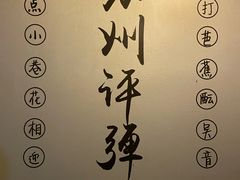 打芭蕉酝吴音
州评弹
点小巷花相迎